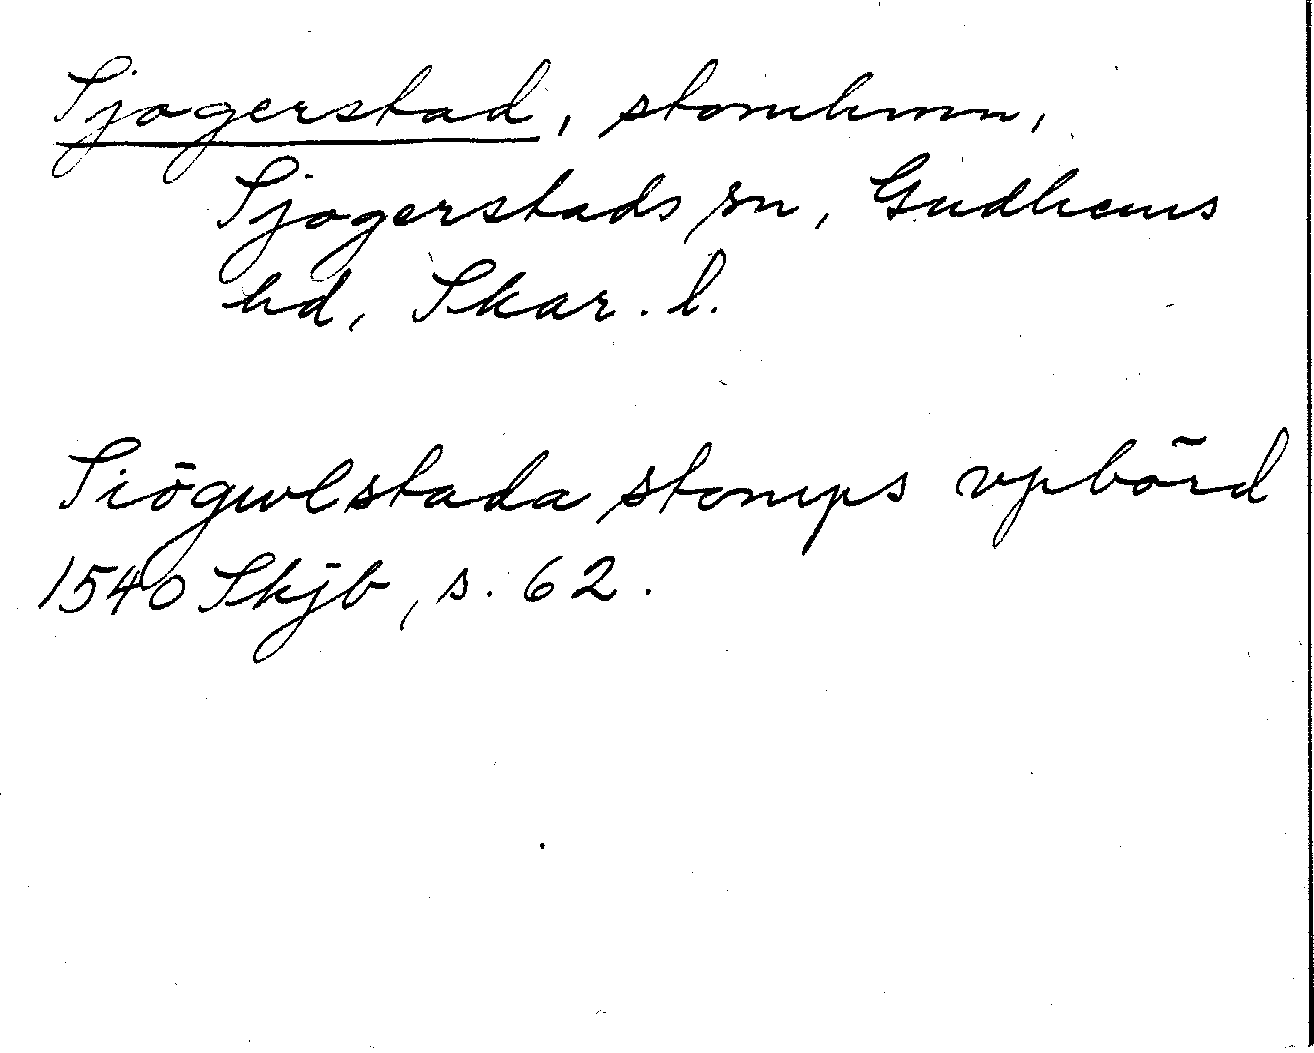 Sjogerstad, stomhmn,
Sjogerstads sn, Gudhems
hd, Skar. l.
Siögwlstada stomps vpbörd
1540 Skjb, s. 62.